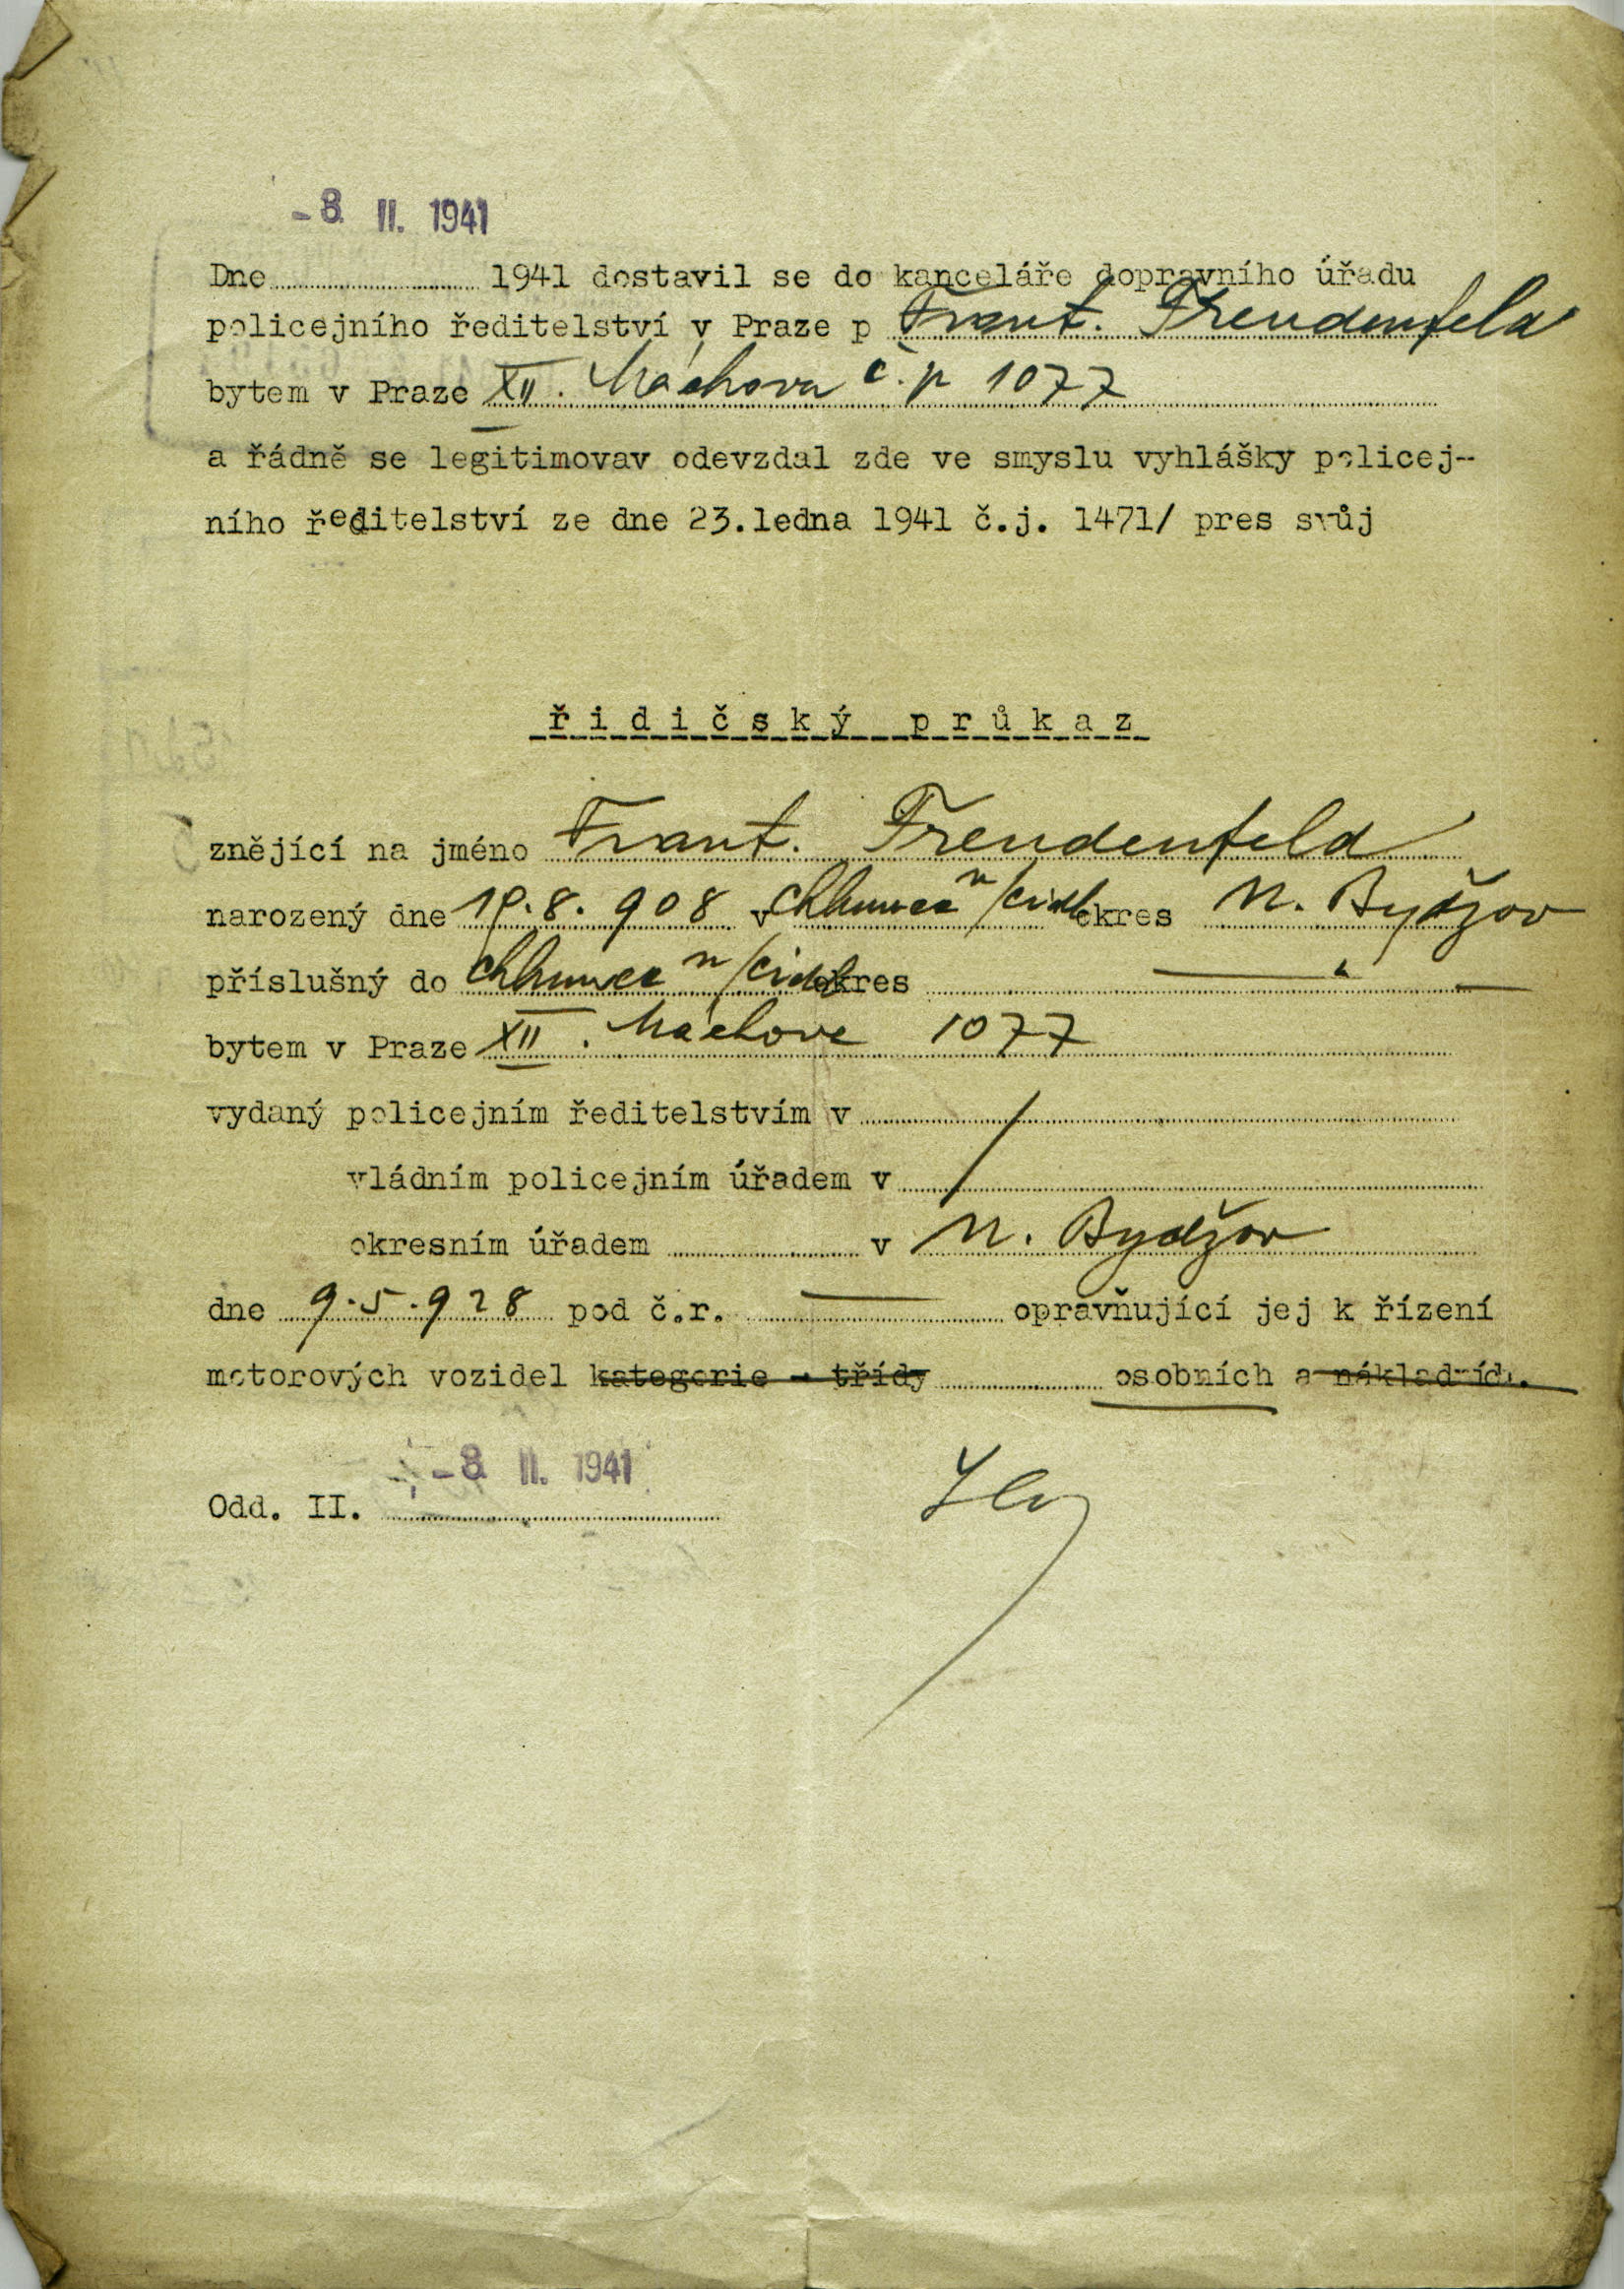 -8. II. 1941
Dne 1941 dostavil se do kanceláře dopravního úřadu
policejního ředitelství v Praze p Frant. Freudenfeld
bytem v Praze XII. Máchova č.p 1077
a řádně se legitimovav odevzdal zde ve smyslu vyhlášky policej-
ního ředitelství ze dne 23.ledna 1941 č.j. 1471/ pres svůj
řidičský průkaz
znějící na jméno Frant. Freudenfeld
narozený dne 19.8.908 v Chlumec n/Cidl okres N. Bydžov
příslušný do Chlumec n/Cidl okres
bytem v Praze XII. Máchova 1077
vydaný policejním ředitelstvím v
vládním policejním úřadem v
okresním úřadem v N. Bydžov
dne 9.5.928 pod č.r. opravňující jej k řízení
motorových vozidel kategorie - třídy osobních a nákladních.
-8. II. 1941
Odd. II.